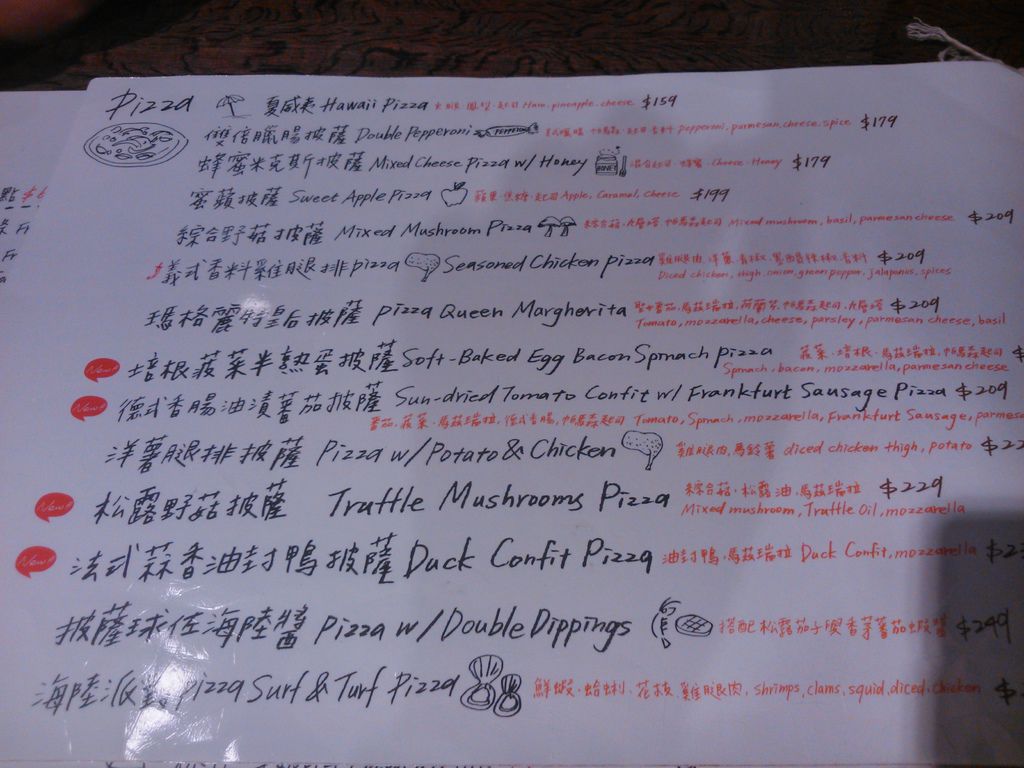 Pizza 夏威夷 Hawaii Pizza 火腿.鳳梨.起司 Ham, pineapple, cheese $159
雙倍臘腸披薩 Double Pepperoni pepperoni, parmesan, cheese, spice $179
蜂蜜米克斯披薩 Mixed Cheese Pizza w/ Honey HONEY 混合起司.蜂蜜.Cheese.Honey $179
蜜蘋披薩 Sweet Apple Pizza 蘋果.焦糖.起司 Apple, Caramel, Cheese $199
綜合野菇披薩 Mixed Mushroom Pizza 綜合菇.九層塔.帕馬森起司 Mixed mushroom, basil, parmesan cheese $209
義式香料雞腿排pizza Seasoned Chicken pizza 雞腿肉,洋蔥,青椒,墨西哥辣椒,香料 $209
Diced chicken, thigh, onion, green pepper, jalapenos, spices
瑪格麗特皇后披薩 pizza Queen Margherita 聖女番茄,馬茲瑞拉,荷蘭芹,帕馬森起司,九層塔 $209
Tomato, mozzarella, cheese, parsley, parmesan cheese, basil
New! 培根菠菜半熟蛋披薩 Soft-Baked Egg Bacon Spinach pizza 菠菜.培根.馬茲瑞拉,帕馬森起司 $
Spinach, bacon, mozzarella, parmesan cheese
New! 德式香腸油漬蕃茄披薩 Sun-dried Tomato Confit w/ Frankfurt Sausage Pizza $209
蕃茄,菠菜,馬茲瑞拉,德式香腸,帕馬森起司 Tomato, Spinach, mozzarella, Frankfurt Sausage, parmesa
洋薯腿排披薩 Pizza w/ Potato & Chicken 雞腿肉,馬鈴薯 diced chicken thigh, potato $22
New! 松露野菇披薩 Truffle Mushrooms Pizza 綜合菇.松露油.馬茲瑞拉 $229
Mixed mushroom, Truffle Oil, mozzarella
New! 法式蒜香油封鴨披薩 Duck Confit Pizza 油封鴨,馬茲瑞拉 Duck Confit, mozzarella $2
披薩球佐海陸醬 Pizza w/ Double Dippings 搭配松露茄子與香菜蕃茄蝦醬 $249
海陸派對pizza Surf & Turf Pizza 鮮蝦.蛤蜊.花枝.雞腿肉, shrimps, clams, squid, diced chicken $